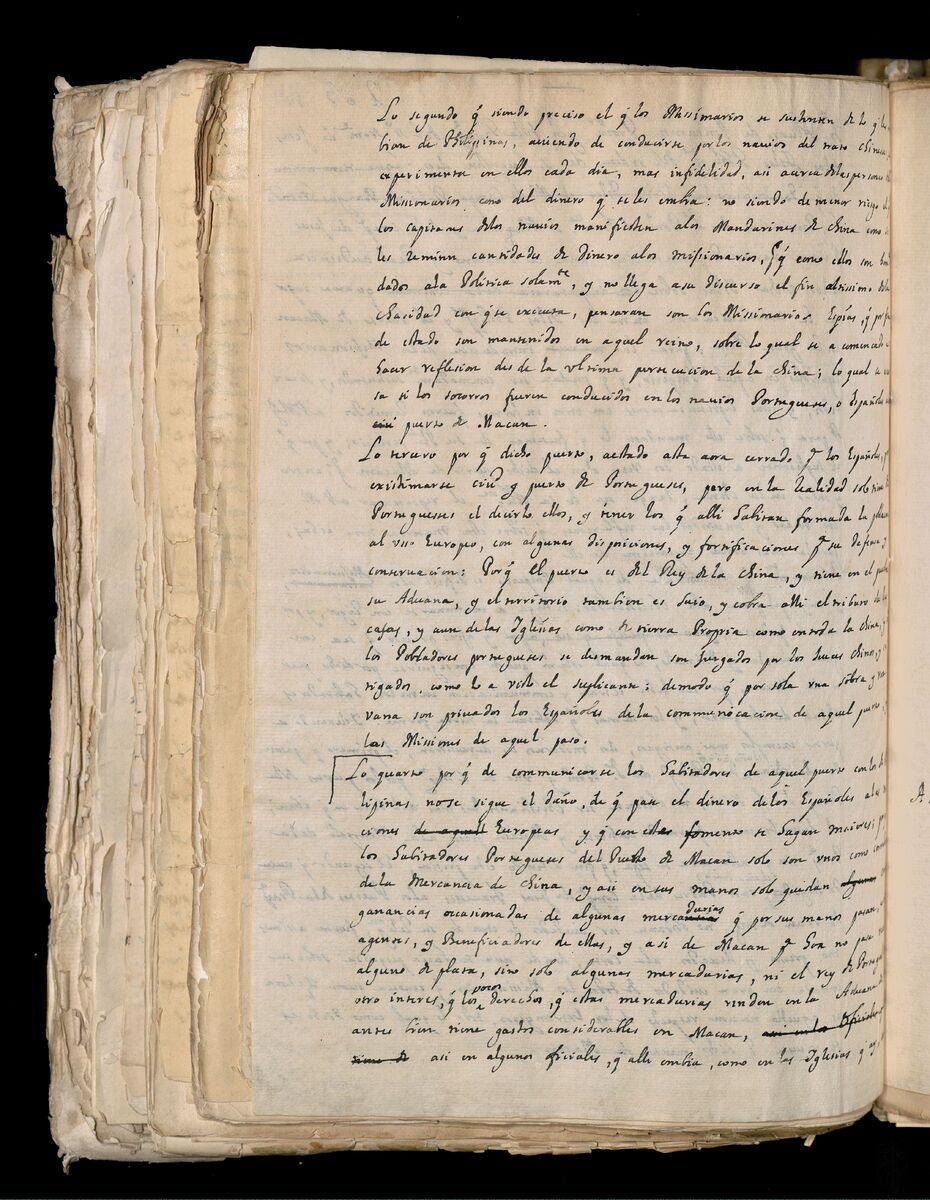 Lo segundo q̃ siendo preciso el q̃ los Missionarios se sustenten de lo q̃
bian de Philippinas, aviendo de conducirse por los navios del trato
experimenta en ellos cada dia, mas infidelidad, asi acerca delas personas
Missionarios como del dinero q̃ se les embia: no siendo de menor riesgo
los capitanes delos navios manifiesten alos Mandarines de China como
les remiten cantidades de dinero alos missionarios, q̃ como ellos son
dados ala Politica solamte, y no llega a su discurso el fin altissimo
Charidad con q̃ se executa, pensaran son los Missionarios Espias, q̃ por
de estado son mantenidos en aquel reino, sobre lo qual se a comencado
hacer reflesion des de la vltima persecucion de la China; lo qual
sa si los socorros fueren conducidos en los navios Portugueses, o Españoles
puerto de Macan.
Lo tercero por q̃ dicho puerto, a estado asta aora cerrado pª los Españoles,
existimarse ciud y puerto de Portugueses, pero en la realidad solo
Portugueses el decirlo ellos, y tener los q̃ alli habitan formada la
al vso Europeo, con algunas disposiciones, y fortificaciones pª su defensa
conservacion: Porq̃ el puerto es del Rey de la China, y tiene en el
su Aduana, y el territorio tambien es suio, y cobra alli el tributo
casas, y aun de las Iglesias como de tierra Propria como en toda la China,
los Pobladores portugueses se desmandan son juzgados por los Jueces Chinos,
tigados, como lo a visto el suplicante; de modo q̃ por sola vna sobra y
vana son privados los Españoles de la communicacion de aquel puerto
las Missiones de aquel paso.
Lo quarto por q̃ de communicarse los habitadores de aquel puerto con los
lipinas no se sigue el daño, de q̃ pase el dinero de los Españoles alas
ciones de aquell Europeas y q̃ con estas fomento se hagan maiores;
los habitadores Portugueses del Puerto de Macan solo son vnos como
de la Mercancia de China, y asi en sus manos solo quedan algunas
ganancias ocasionadas de algunas mercadurias q̃ por sus manos pasan,
agentes, y Beneficiadores de ellas, y asi de Macan pª Goa no pasa
alguno de plata, sino solo algunas mercadurias, ni el rey de
otro interes, q̃ los pocos derechos, q̃ estas mercadurias rinden en la Aduana
antes bien tiene gastos considerables en Macan, asi en los oficiales
tiene de asi en algunos oficiales, q̃ alli embia, como en las Iglesias q̃